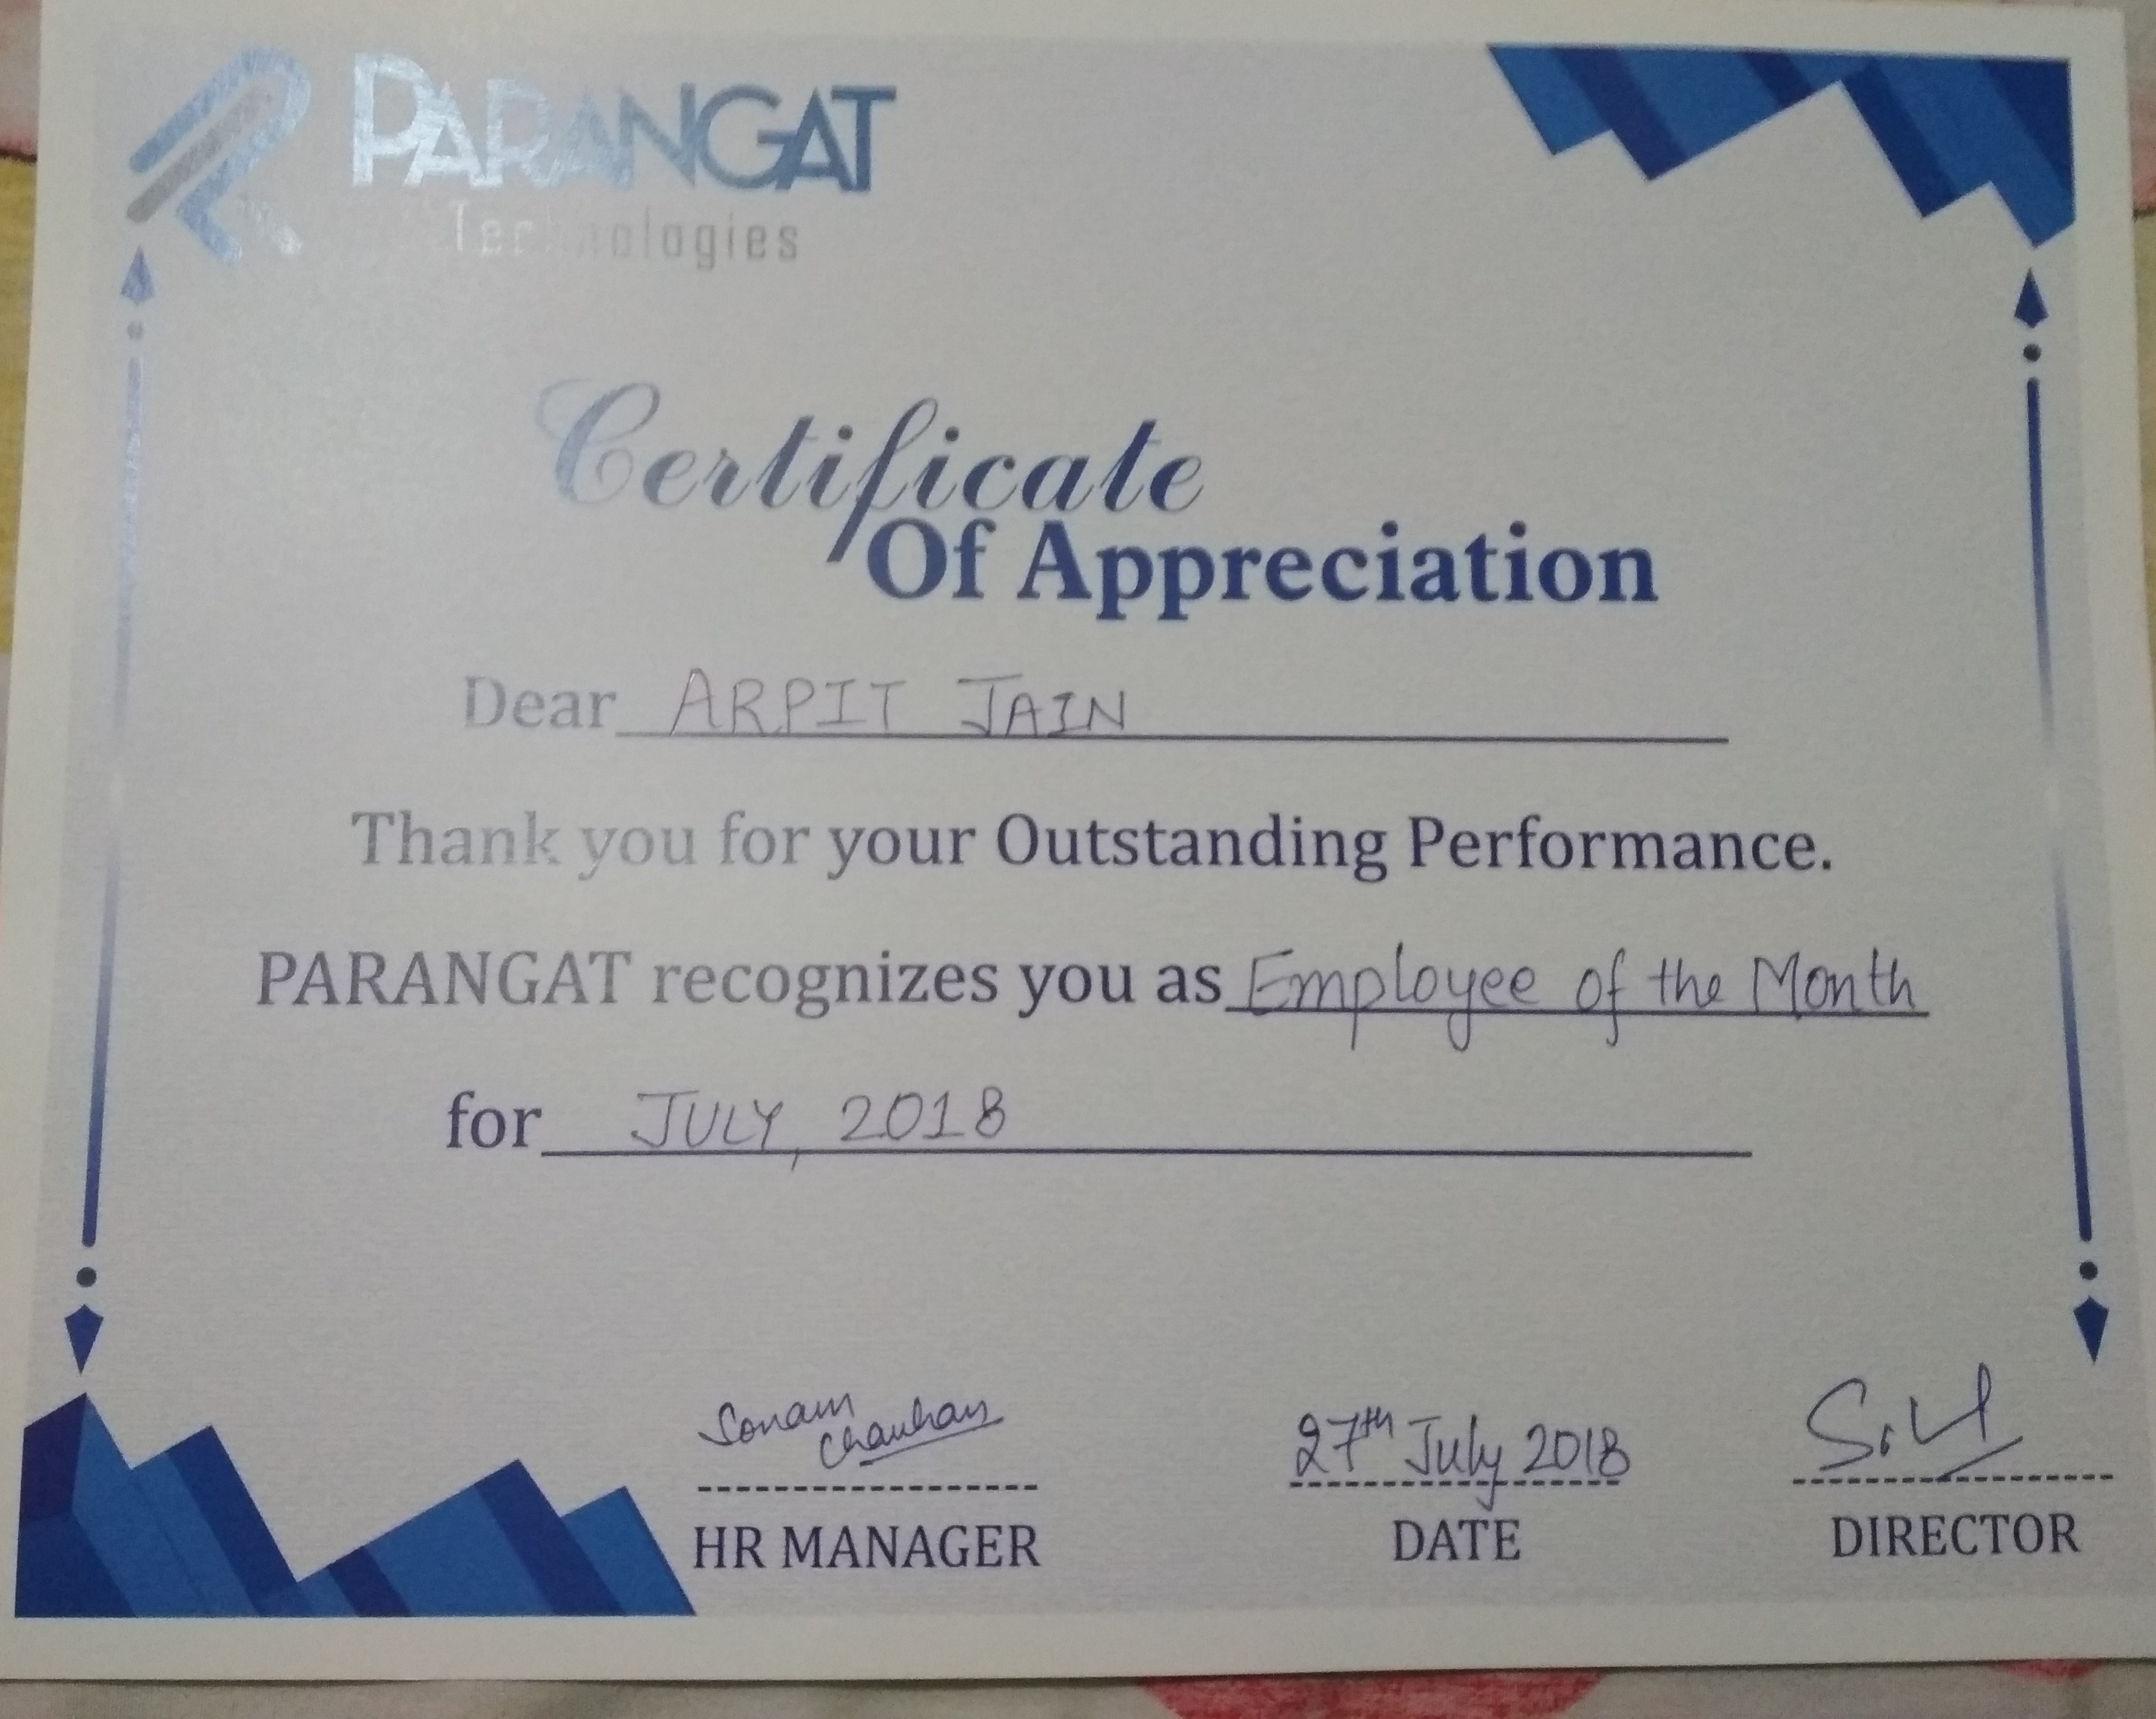 PARANGAT
Technologies
Certificate
Of Appreciation
Dear ARPIT JAIN
Thank you for your Outstanding Performance.
PARANGAT recognizes you as Employee of the Month
for JULY, 2018
Sonam
Chauhan
27th July 2018
HR MANAGER
DATE
DIRECTOR